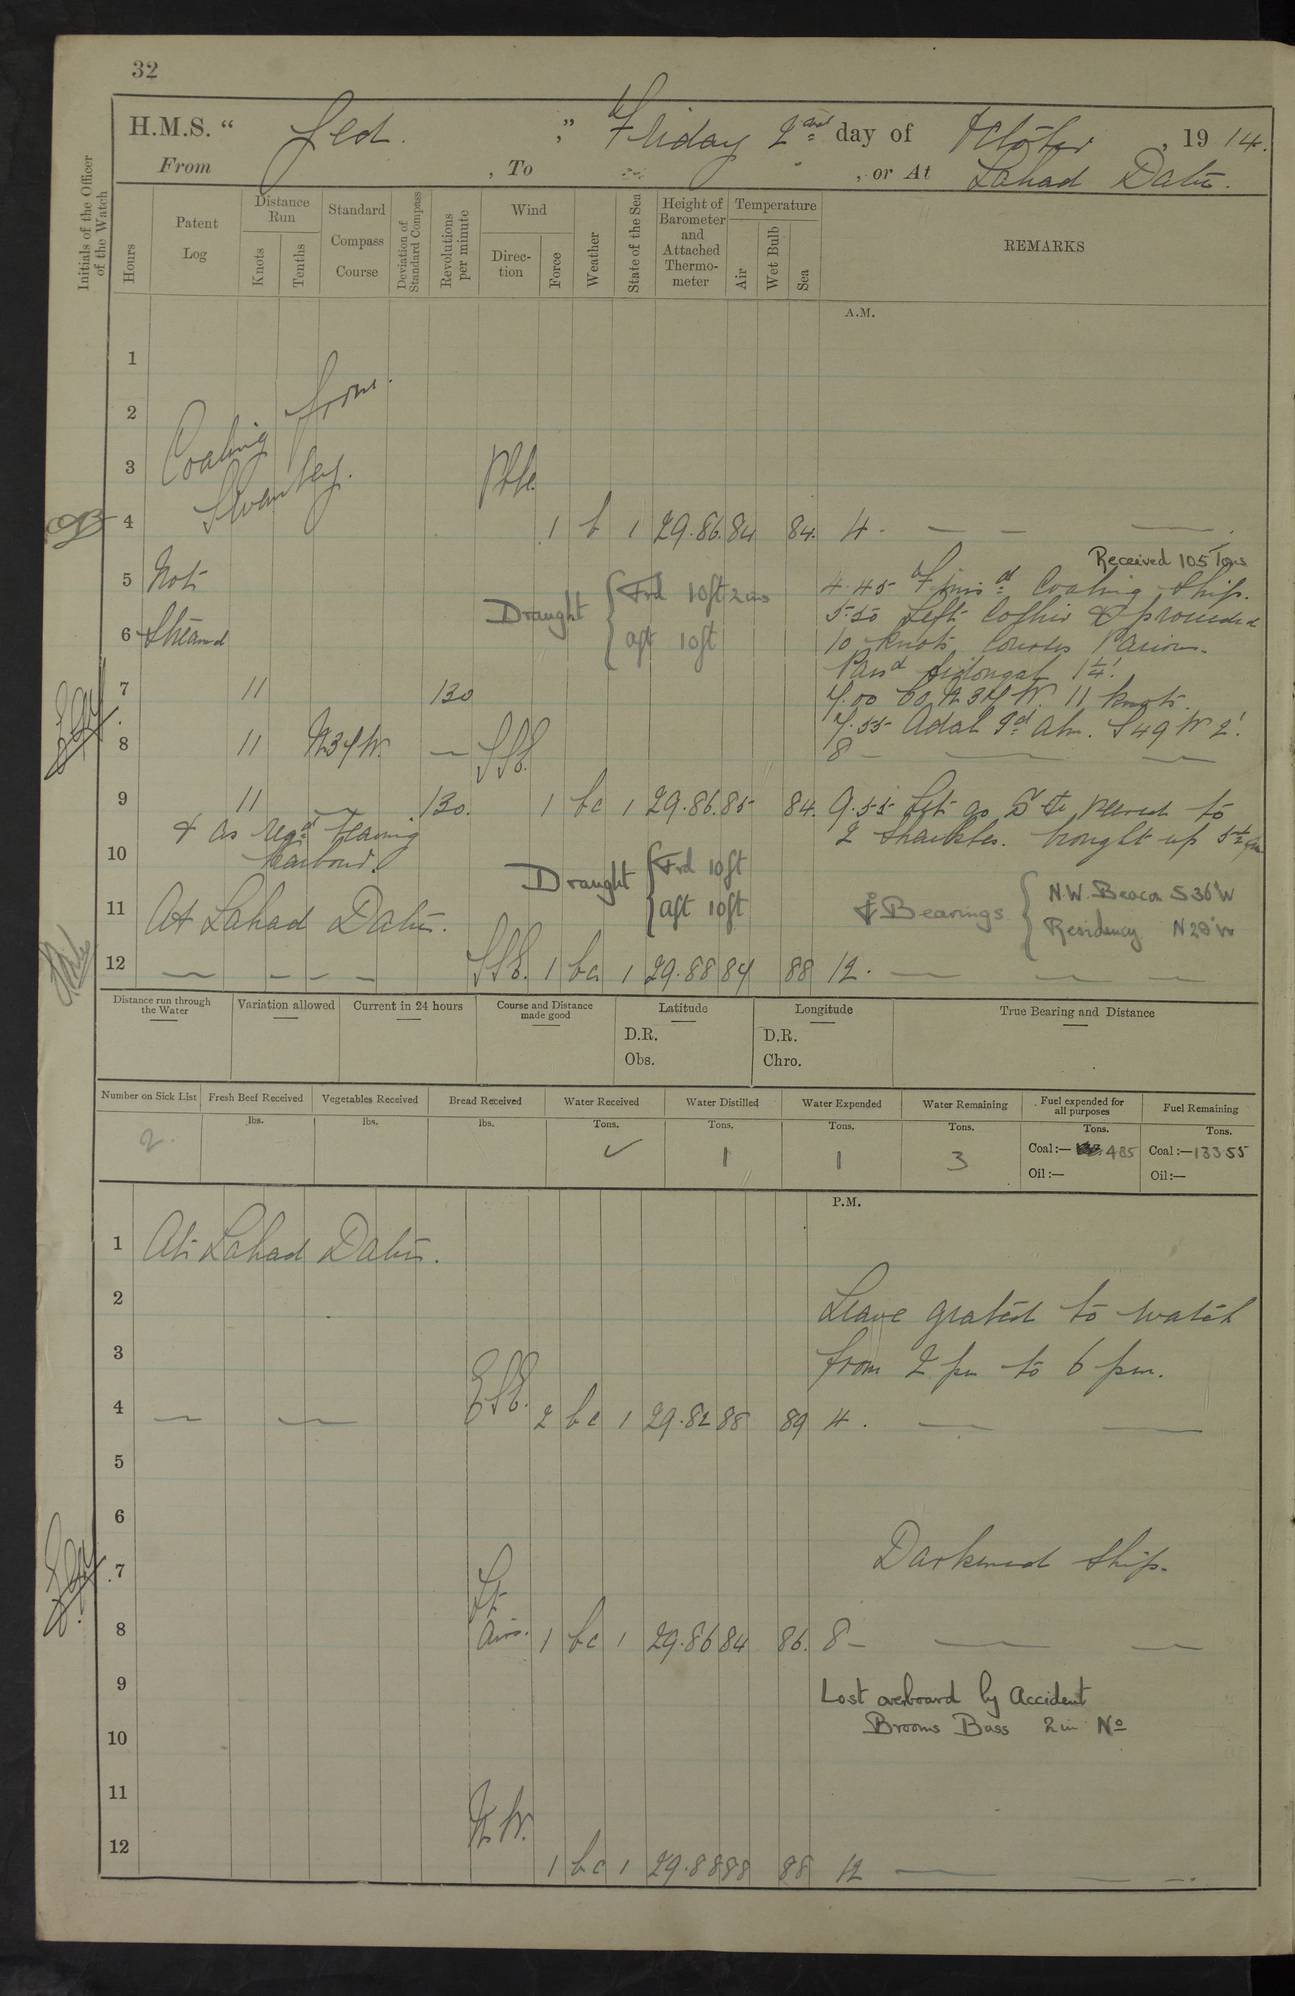 32
H.M.S. “ Jed. ,” Friday 2nd day of October , 19 14.
From , To , or At Lahad Datu.
Initials of the Officer of the Watch
Hours
Patent Log
Distance Run
Knots
Tenths
Standard Compass Course
Deviation of Standard Compass
Revolutions per minute
Wind
Direc- tion
Force
Weather
State of the Sea
Height of Barometer and Attached Thermo- meter
Temperature
Air
Wet Bulb
Sea
REMARKS
A.M.
1
2 Coaling from
3 Swanley.
4 1 b 1 29.86 84 84. 4 -
Received 105 Tons
5 Not Draught { Frd 10ft 2ins 4.45 Finisd Coaling Ship.
5.50 Left Collier & proceeded
6 Steamd aft 10ft 10 knots courses various.
Passd 1¼'
7 11 130 7.00 Co N 34 W. 11 knots.
7.55 Adal Id abm. S 49 W 2'.
8 11 N34W. SSE. 8 -
9 11 130. 1 bc 1 29.86 85 84. 9.55 Let go S veered to
& as reqd nearing harbour.
2 shackles. brought up 5½ fm
10 Draught { Frd 10ft
aft 10ft
Bearings { N.W. Beacon S36°W
Residency N20°W
11 At Lahad Datu.
12 SSE. 1 bc 1 29.88 84 88 12.
Distance run through the Water
Variation allowed
Current in 24 hours
Course and Distance made good
Latitude
D.R.
Obs.
Longitude
D.R.
Chro.
True Bearing and Distance
Number on Sick List
Fresh Beef Received
Vegetables Received
Bread Received
Water Received
Water Distilled
Water Expended
Water Remaining
Fuel expended for all purposes
Fuel Remaining
lbs. lbs. lbs. Tons. Tons. Tons. Tons. Tons. Tons.
2. ✓ 1 1 3 Coal:— 4.85 Coal:—133.55
Oil:— Oil:—
P.M.
1 At Lahad Datu.
2 Leave grated to watch
3 from 2 pm to 6 pm.
4 ESE. 2 bc 1 29.82 88 89 4.
5
6
7 Darkened ship.
8 Lt Airs. 1 bc 1 29.86 84 86. 8 -
9 Lost overboard by Accident
Brooms Bass 2 in No
10
11
12 N.W. 1 bc 1 29.88 88 88 12